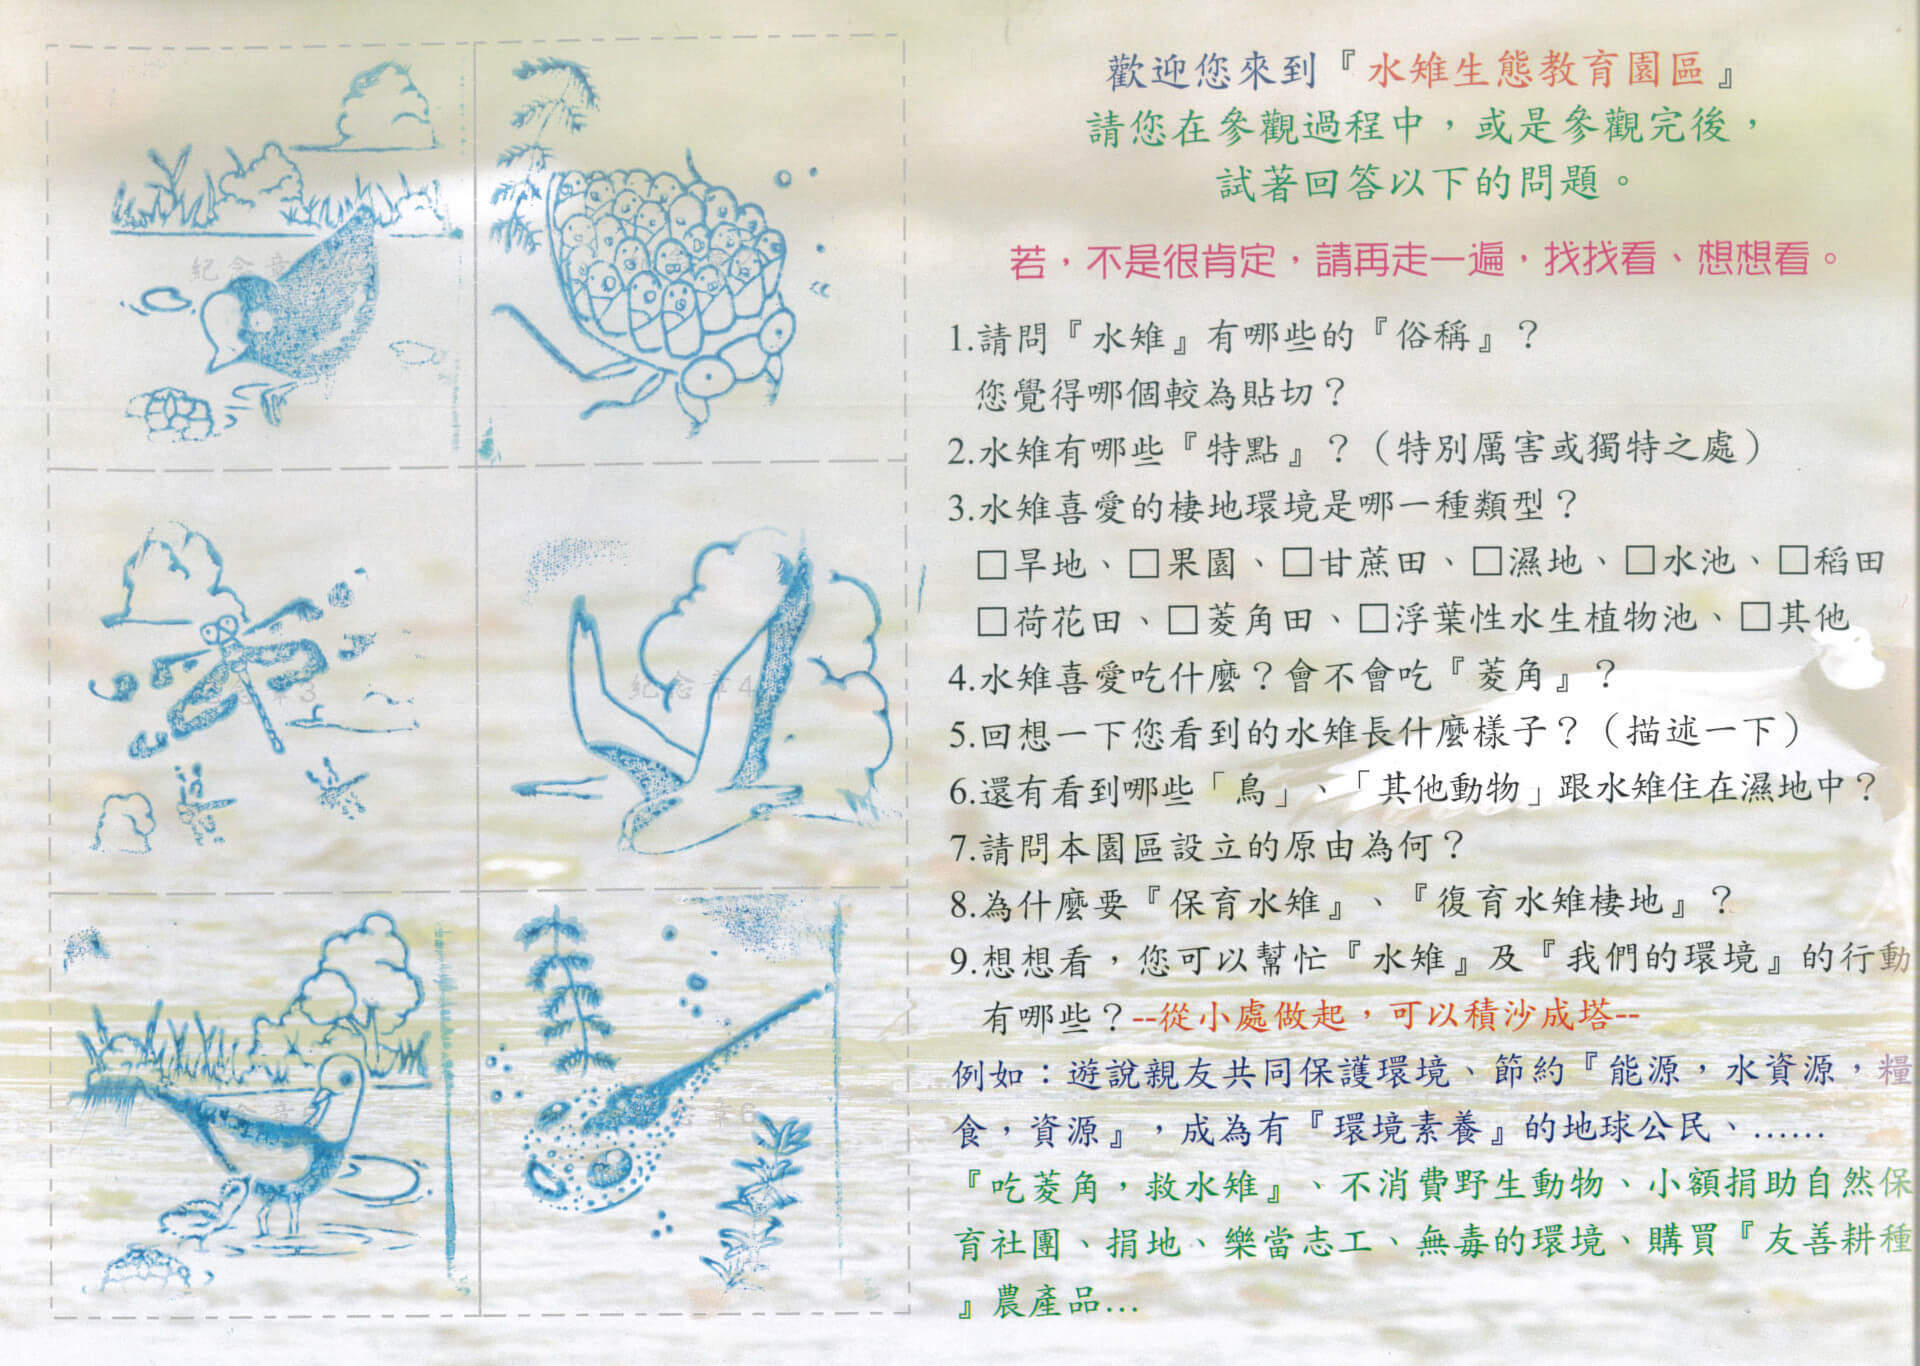 紀念章
紀念章3
紀念章4
念章5
念章6
歡迎您來到『水雉生態教育園區』
請您在參觀過程中，或是參觀完後，
試著回答以下的問題。
若，不是很肯定，請再走一遍，找找看、想想看。
1.請問『水雉』有哪些的『俗稱』？
您覺得哪個較為貼切？
2.水雉有哪些『特點』？（特別厲害或獨特之處）
3.水雉喜愛的棲地環境是哪一種類型？
□旱地、□果園、□甘蔗田、□濕地、□水池、□稻田
□荷花田、□菱角田、□浮葉性水生植物池、□其他
4.水雉喜愛吃什麼？會不會吃『菱角』？
5.回想一下您看到的水雉長什麼樣子？（描述一下）
6.還有看到哪些「鳥」、「其他動物」跟水雉住在濕地中？
7.請問本園區設立的原由為何？
8.為什麼要『保育水雉』、『復育水雉棲地』？
9.想想看，您可以幫忙『水雉』及『我們的環境』的行動
有哪些？--從小處做起，可以積沙成塔--
例如：遊說親友共同保護環境、節約『能源，水資源，糧
食，資源』，成為有『環境素養』的地球公民、......
『吃菱角，救水雉』、不消費野生動物、小額捐助自然保
育社團、捐地、樂當志工、無毒的環境、購買『友善耕種
』農產品...